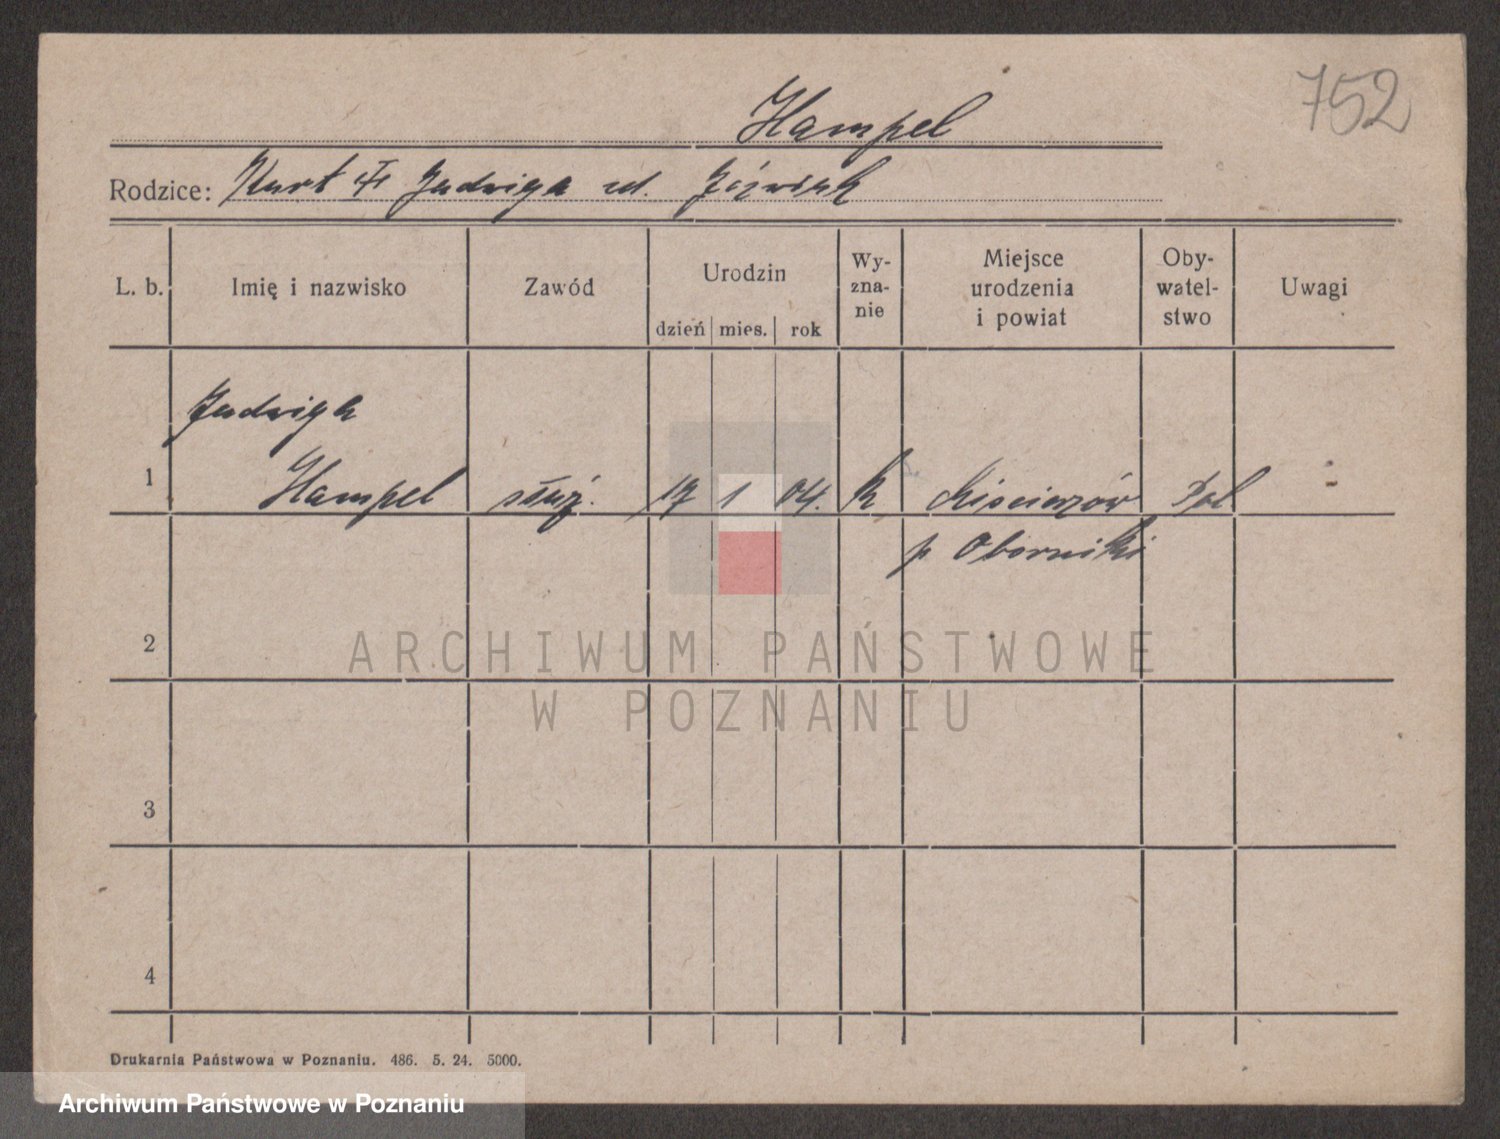 752
Hampel
Rodzice: Kurt Jadwiga zd. Jóźwiak
L. b. Imię i nazwisko Zawód Urodzin dzień mies. rok Wy-zna-nie Miejsce urodzenia i powiat Oby-watel-stwo Uwagi
Jadwiga
1 Hampel służ. 17 1 04. k Pol
p Oborniki
2
ARCHIWUM PAŃSTWOWE
W POZNANIU
3
4
Drukarnia Państwowa w Poznaniu. 486. 5. 24. 5000.
Archiwum Państwowe w Poznaniu